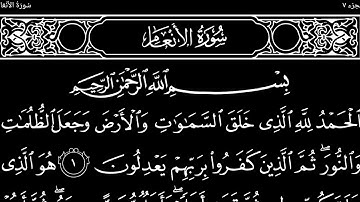 جزء ٧
سورة الأنعام
سُورَةُ الأَنْعَامِ
بِسْمِ اللَّهِ الرَّحْمَٰنِ الرَّحِيمِ
الْحَمْدُ لِلَّهِ الَّذِي خَلَقَ السَّمَاوَاتِ وَالْأَرْضَ وَجَعَلَ الظُّلُمَاتِ
وَالنُّورَ ۖ ثُمَّ الَّذِينَ كَفَرُوا بِرَبِّهِمْ يَعْدِلُونَ ١ هُوَ الَّذِي